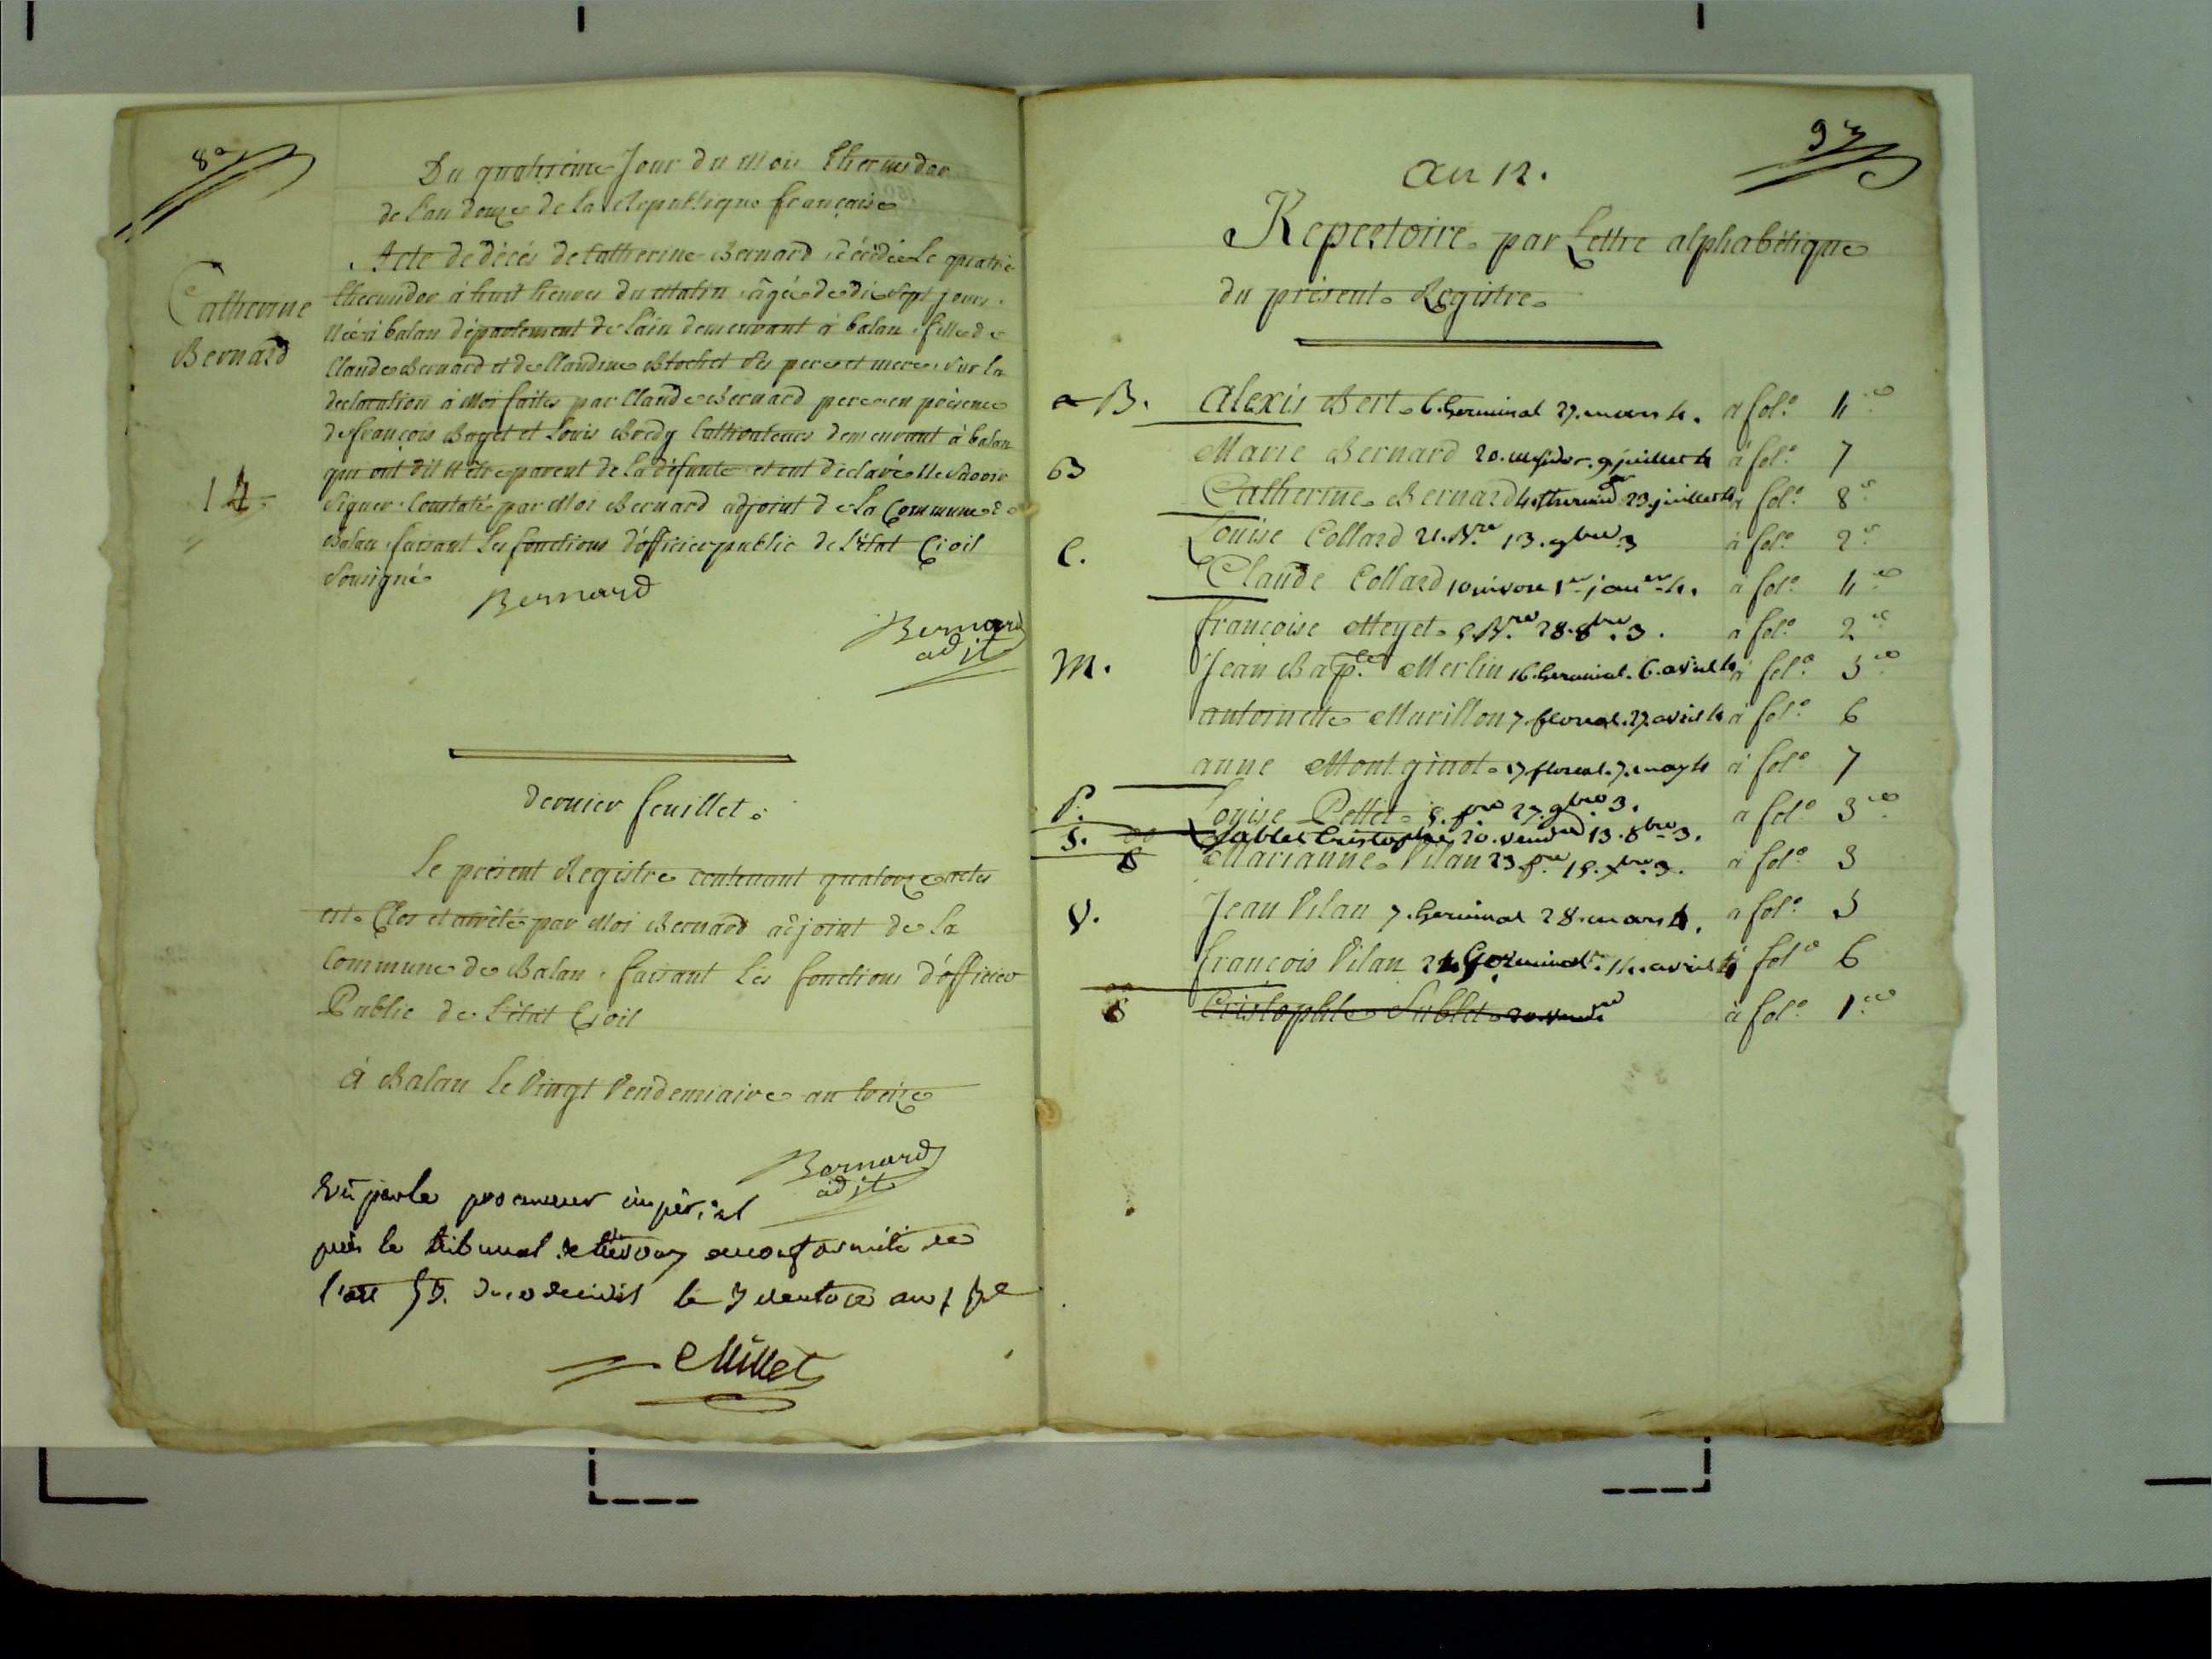 8e
Du quatrieme Jour du Mois Thermidor
de l'an douze de la Republique française
Acte de décés de Catherine Bernard décédée Le quatrie
Catherine
Bernard
thermidor à huit heures du Matin âgée de dix sept jours.
Née à balan département de l'ain demeurant à balan, fille de
Claude Bernard et de Claudine Blochet ses pere et mere, sur la
declaration à Moi faites par Claude Bernard pere en présence
de françois Baget et Louis Bredy Cultivateurs demeurant à balan
qui ont dit N'être parent de la défunte et ont déclaré Ne Savoir
14
Signer. Constaté par Moi Bernard adjoint de la Commune de
Balan faisant Les fonctions d'officier public de L'état Civil
Sousigné
Bernard
Bernard
adjt
dernier feuillet.
Le présent Registre contenant quatorze actes
est Clos et arrêté par Moi Bernard adjoint de la
Commune de Balan, faisant Les fonctions d'officier
Public de L'état Civil
à Balan le Vingt Vendemiaire an treize
Bernard
adjt
Vû par le procureur impérial
près le tribunal de trévoux en conformité de
l'art 53. du code civil le 3 ventose an 13e
Millet
9e
an 12.
Repertoire par Lettre alphabétique
du présent Registre
a B. Alexis Bert 6. Germinal 27. mars 4. a fol.o 4
Marie Bernard 20. messidor. 9 juillet 4 à fol.o 7
B
Catherine Bernard 4. thermidor 23 juillet 4 à fol.o 8
Louise Collard 21. Bre 13. 9bre 3 à fol.o 2
C.
Claude Collard 10 nivose 1er janer 4. à fol.o 4
françoise Meyet 5. Bre 28. 8bre 3. a fol.o 2
M. Jean Bapte Merlin 16. Germinal. 6. avril 4 à fol.o 5
antoinette Murillon 7. floreal. 27. avril 4 à fol.o 6
anne Montginot 17 floreal. 7. may 4 à fol.o 7
P. Louise Pettet 5. fre 27. 9bre 3. a fol.o 3
S. Sublet Cristophe 20. vendre 13. 8bre 3.
S Marianne Vilan 23 fre 15. Xbre 3. à fol.o 3
V. Jean Vilan 7. Germinal 28. mars 4. a fol.o 5
françois Vilan 24 Germinal. 14. avril 4 à fol.o 6
S Cristophle Sublet 20. vendre à fol.o 1